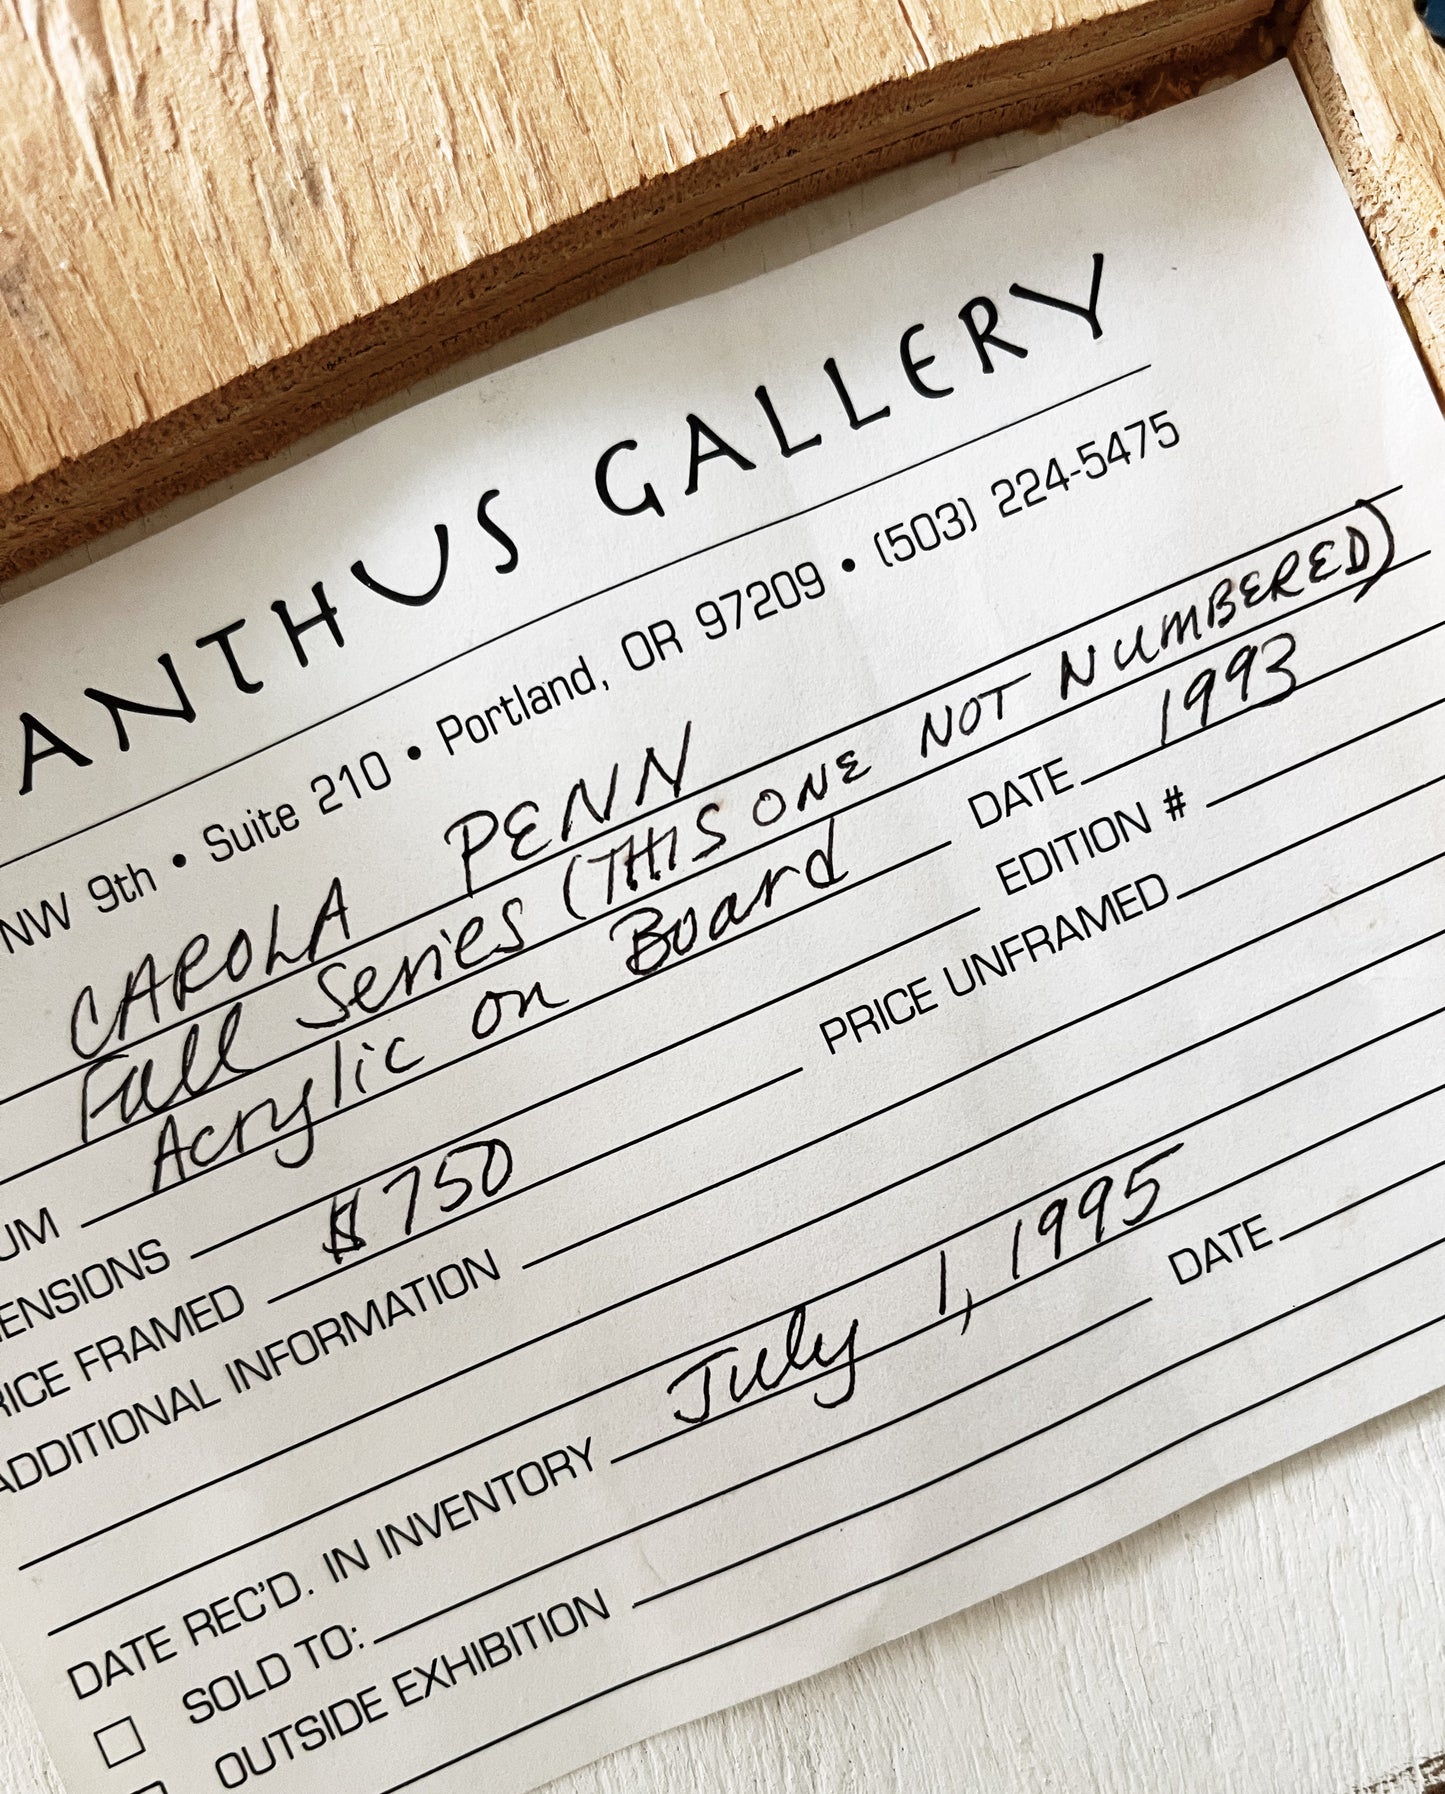 ANTHUS GALLERY
NW 9th • Suite 210 • Portland, OR 97209 • (503) 224-5475
CAROLA PENN
Fall Series (THIS ONE NOT NUMBERED)
UM Acrylic on Board DATE 1993
ENSIONS EDITION #
RICE FRAMED $750 PRICE UNFRAMED
ADDITIONAL INFORMATION
DATE REC'D. IN INVENTORY July 1, 1995
SOLD TO: DATE
OUTSIDE EXHIBITION